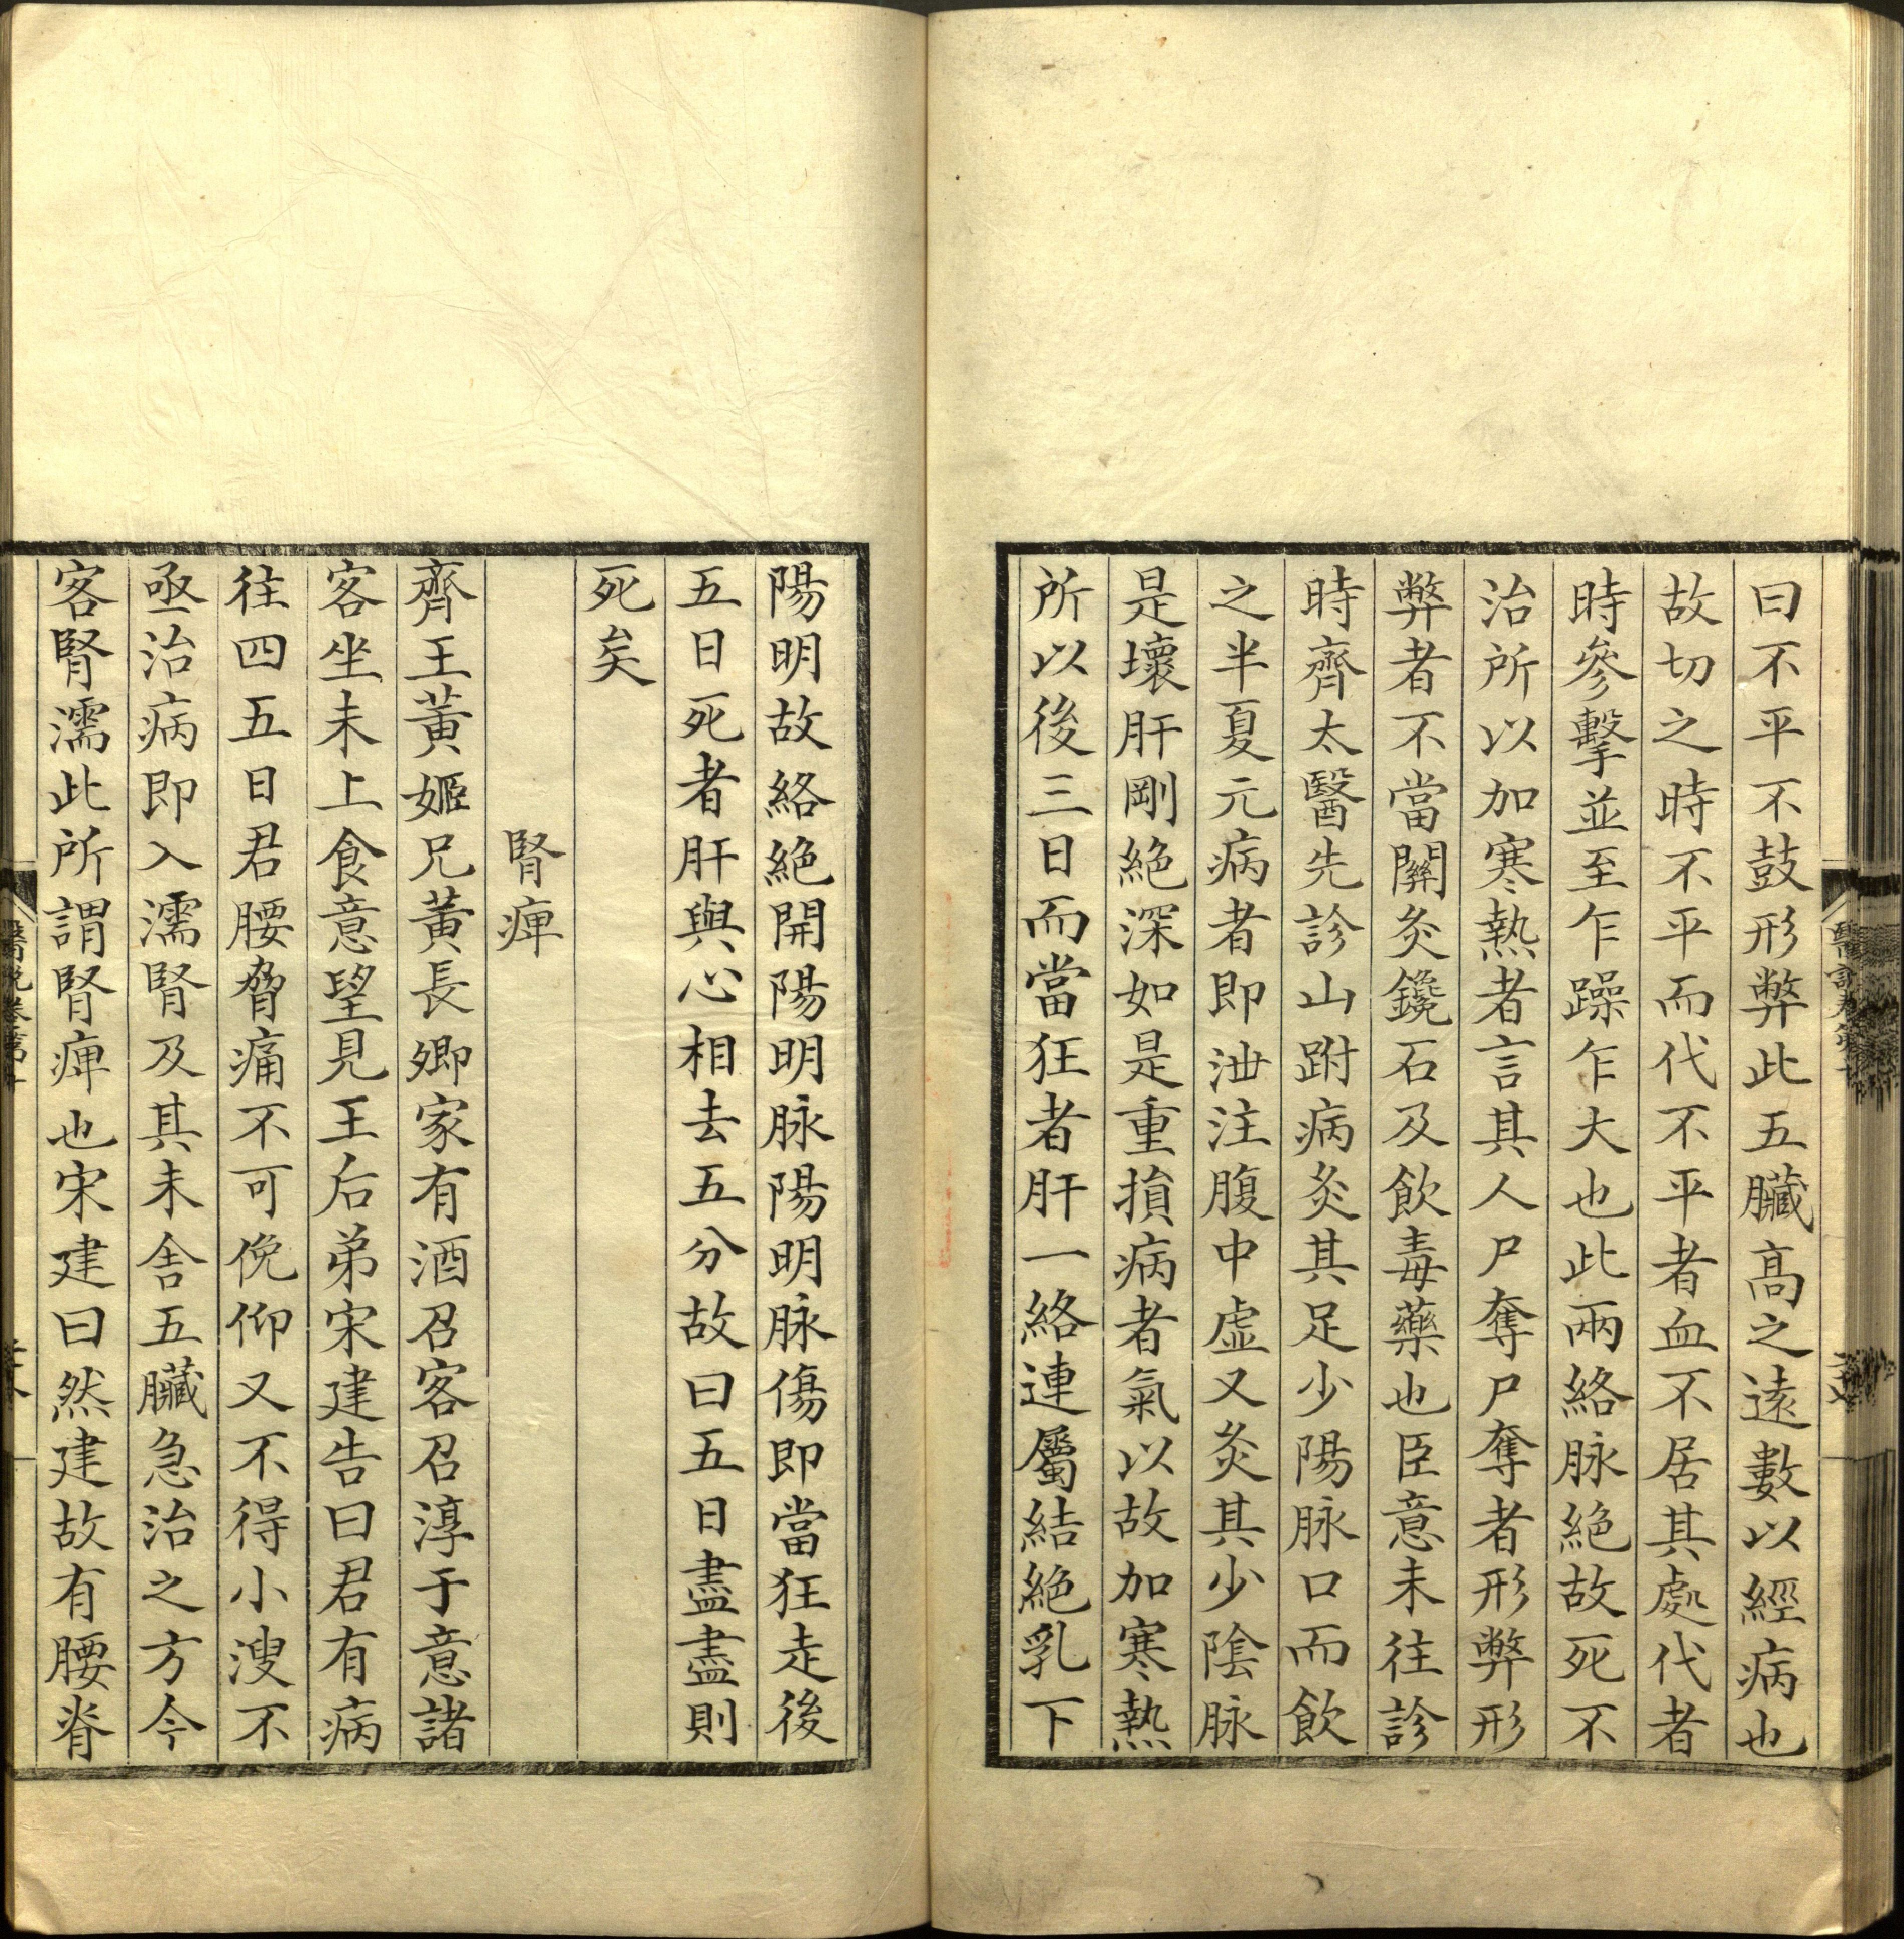 曰不平不鼓形弊此五臟高之遠數以經病也
故切之時不平而代不平者血不居其處代者
時參擊並至乍躁乍大也此兩絡脉絕故死不
治所以加寒熱者言其人尸奪尸奪者形弊形
弊者不當關灸鑱石及飲毒藥也臣意未往診
時齊太醫先診山跗病灸其足少陽脉口而飲
之半夏元病者即泄注腹中虛又灸其少陰脉
是壞肝剛絕深如是重損病者氣以故加寒熱
所以後三日而當狂者肝一絡連屬結絕乳下
陽明故絡絕開陽明脉陽明脉傷即當狂走後
五日死者肝與心相去五分故曰五日盡盡則
死矣
腎痺
齊王黃姬兄黃長卿家有酒召客召淳于意諸
客坐未上食意望見王后弟宋建告曰君有病
往四五日君腰脅痛不可俛仰又不得小溲不
亟治病即入濡腎及其未舍五臟急治之方今
客腎濡此所謂腎痺也宋建曰然建故有腰脊
醫說卷第十